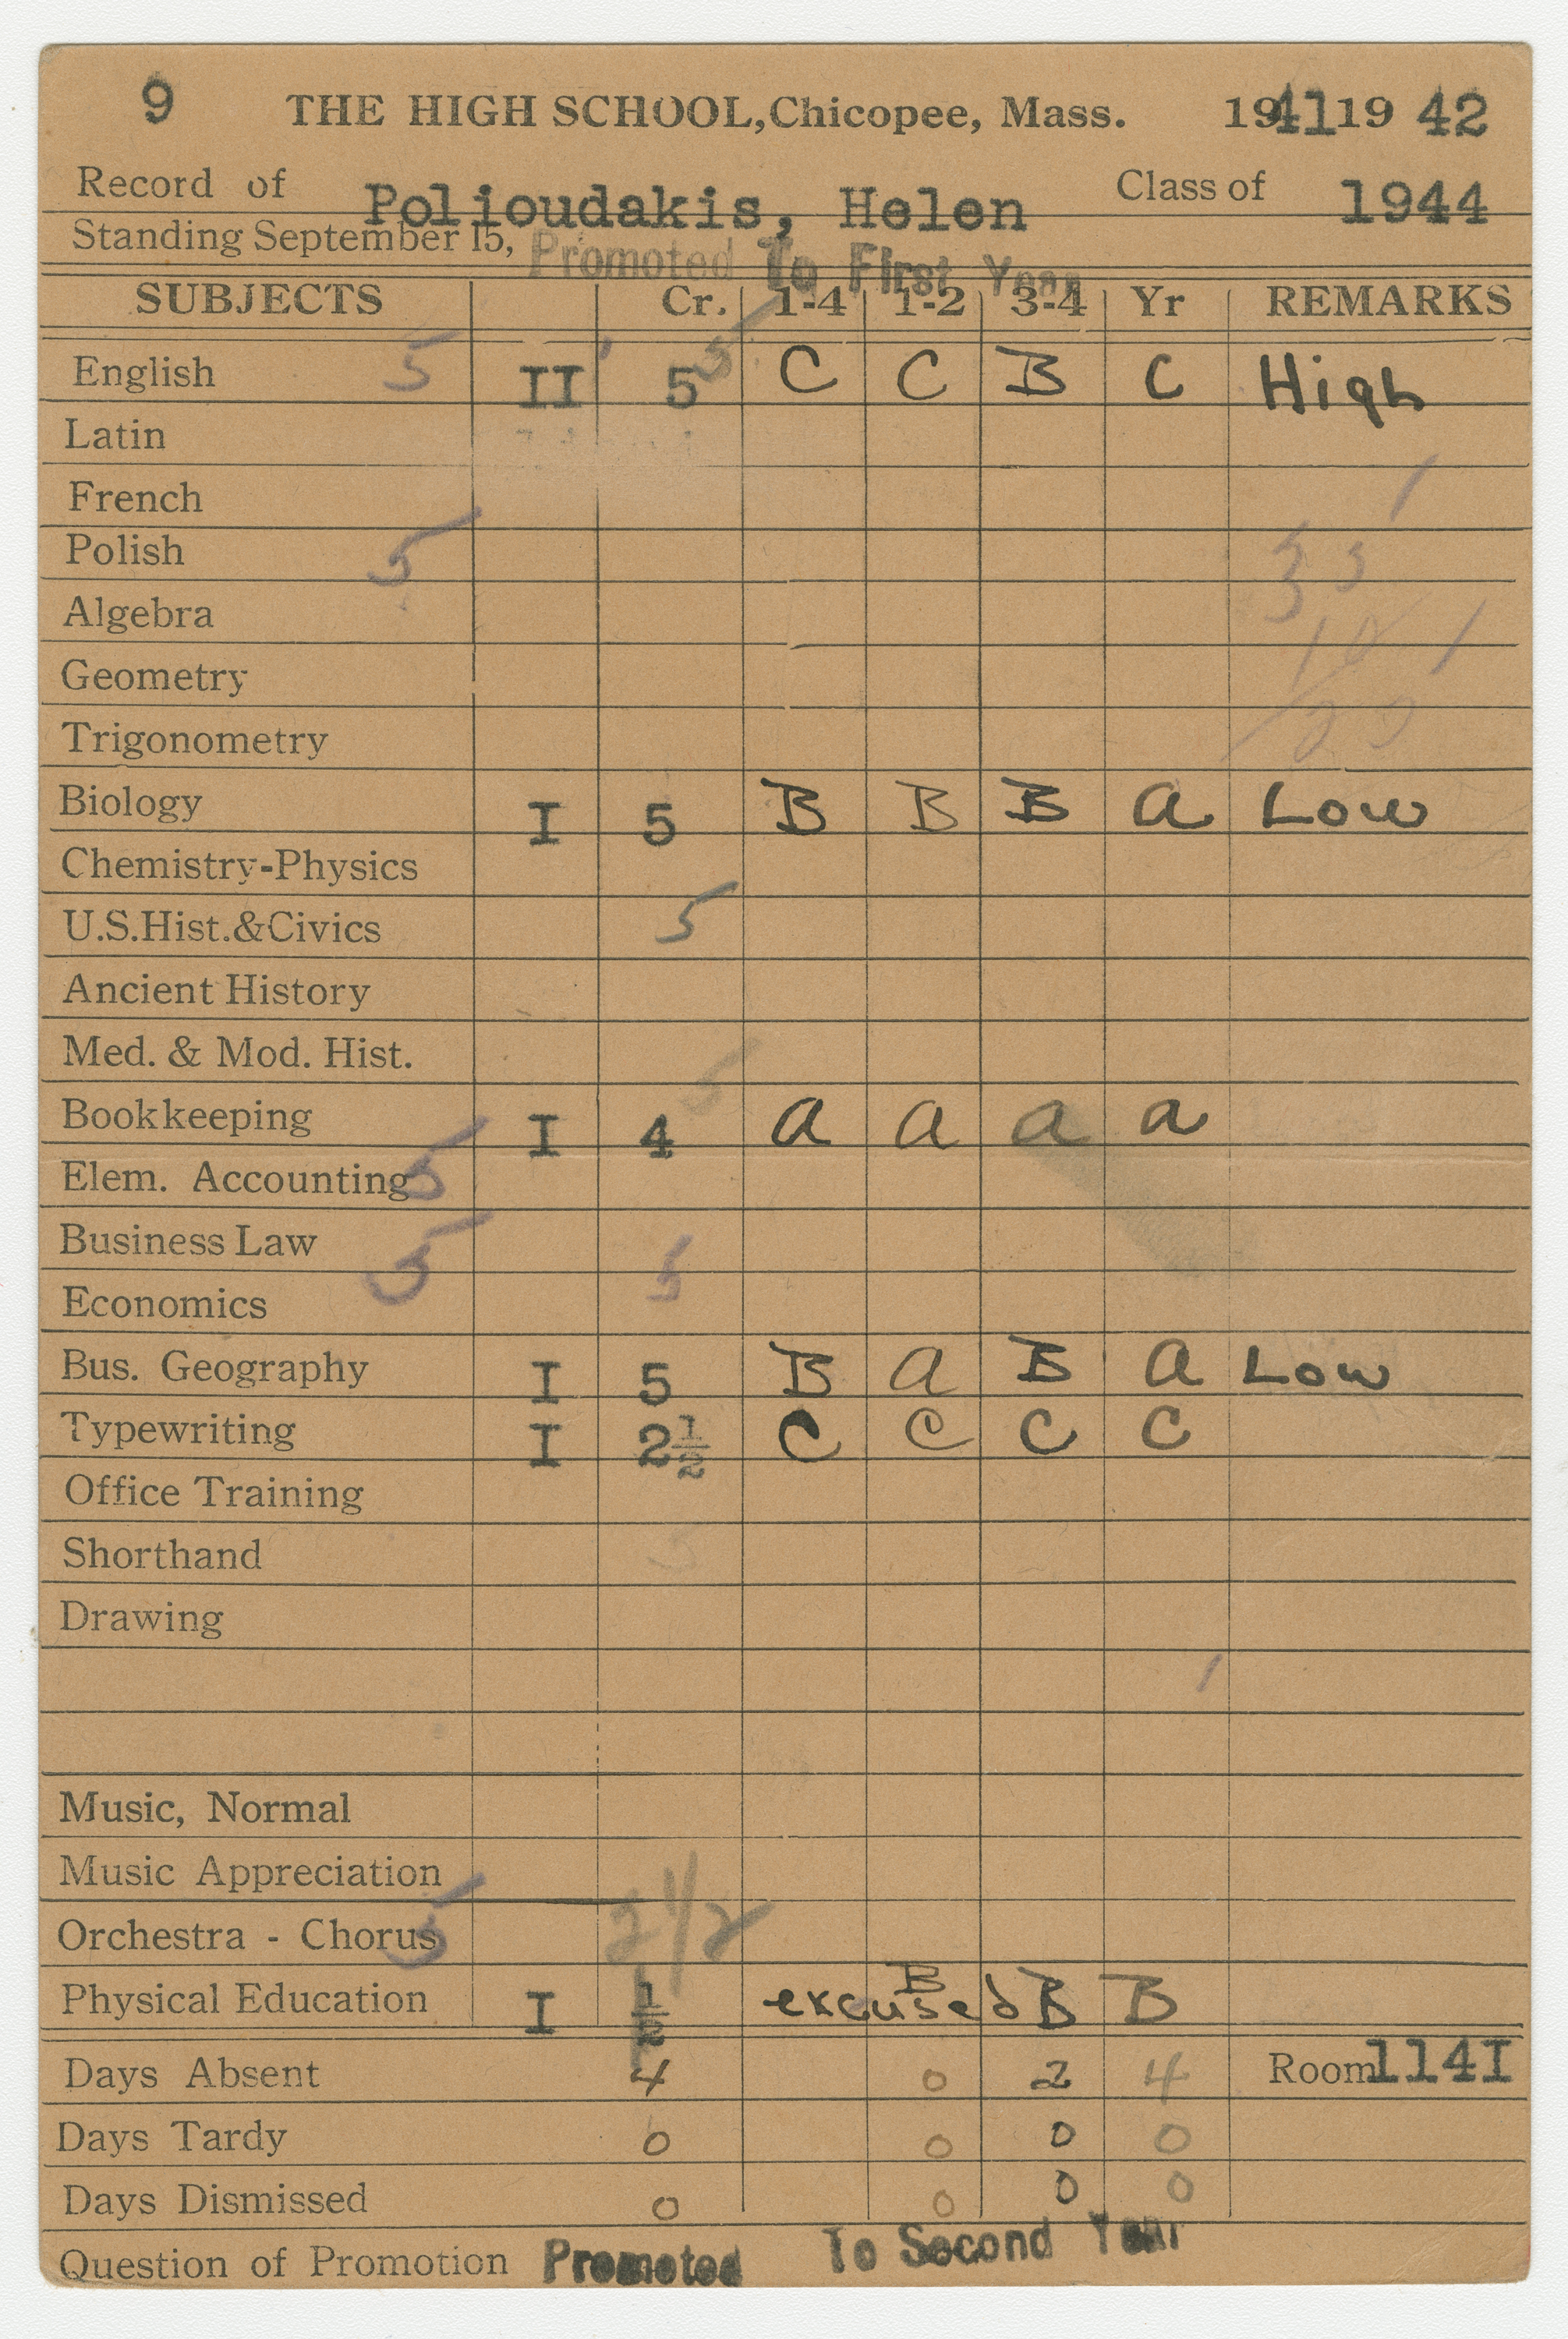 9 THE HIGH SCHOOL, Chicopee, Mass. 1941 19 42
Record of Polioudakis, Helen Class of 1944
Standing September 15, Promoted To First Year
SUBJECTS Cr. 1-4 1-2 3-4 Yr REMARKS
English 5 II 5 5 C C B C High
Latin
French
Polish 5
Algebra
Geometry
Trigonometry
Biology I 5 B B B a Low
Chemistry-Physics
U.S.Hist.&Civics 5
Ancient History
Med. & Mod. Hist.
Bookkeeping I 4 5 a a a a
Elem. Accounting 5
Business Law 5
Economics 5
Bus. Geography I 5 B a B a Low
Typewriting I 2½ C C C C
Office Training
Shorthand
Drawing
Music, Normal
Music Appreciation
Orchestra - Chorus 5 2 1/2
Physical Education I ½ excused B B B
Days Absent 4 0 2 4 Room 114I
Days Tardy 0 0 0 0
Days Dismissed 0 0 0 0
Question of Promotion Promoted To Second Year